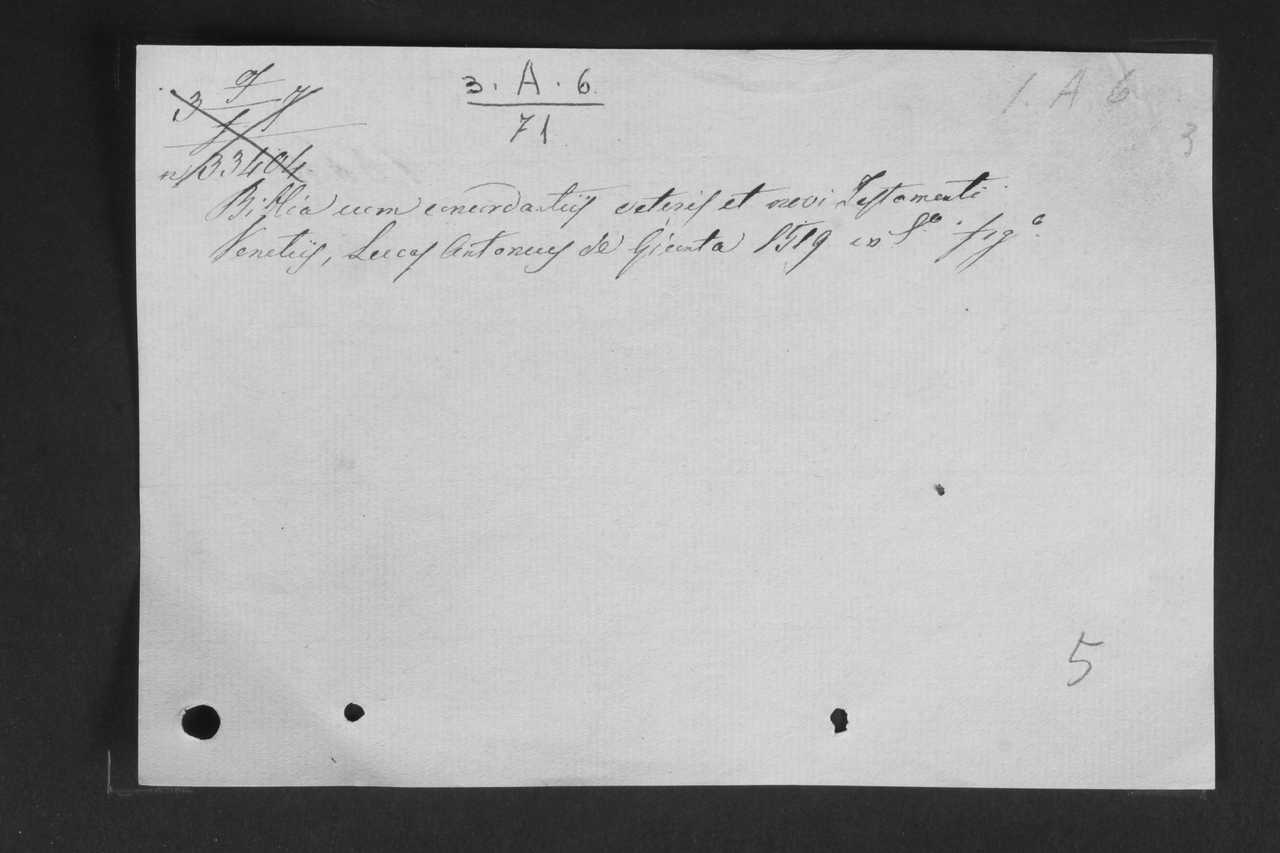 3. A. 6
71
1. A 6
3
n 33404
Biblia cum concordantijs veteris et novi Testamenti
Venetijs, Lucas Antonius de Giunta 1519 in 8.º fig.º
5